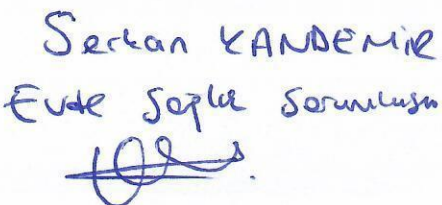 Serkan KANDEMİR
Evde Sağlık Sorumlusu